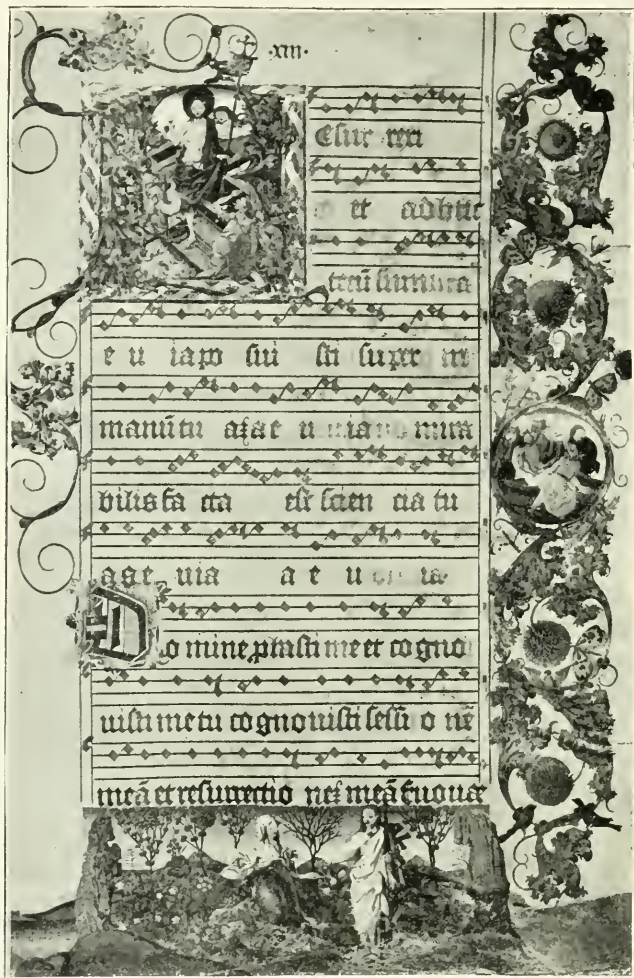 ·xiii·
Resur rexi
et adhuc
tecū sum
e u iapo sui sti super me
manū tu mira
bilis fa cta est scien cia tu
a e uia a e u ia
Do mine ꝓbasti me et cogno
uisti me tu cognouisti sessi o nē
meā et resurrectio nē meā Euouae